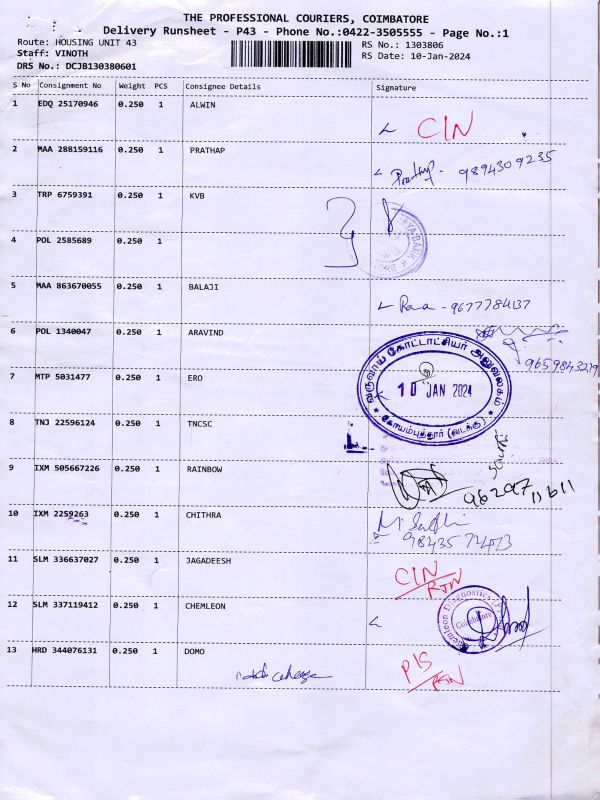 THE PROFESSIONAL COURIERS, COIMBATORE
Delivery Runsheet - P43 - Phone No.:0422-3505555 - Page No.:1
Route: HOUSING UNIT 43
Staff: VINOTH
DRS No.: DCJB130380601
RS No.: 1303806
RS Date: 10-Jan-2024
S No Consignment No Weight PCS Consignee Details Signature
1 EDQ 25170946 0.250 1 ALWIN
CIN
2 MAA 288159116 0.250 1 PRATHAP
Prathap. 9894309235
3 TRP 6759391 0.250 1 KVB
4 POL 2585689 0.250 1
5 MAA 863670055 0.250 1 BALAJI
6 POL 1340047 0.250 1 ARAVIND
9659843219
7 MTP 5031477 0.250 1 ERO
வருவாய் கோட்டாட்சியர் அலுவலகம்
10 JAN 2024
கோயம்புத்தூர் (வடக்கு)
8 TNJ 22596124 0.250 1 TNCSC
9 IXM 505667226 0.250 1 RAINBOW
10 IXM 2259263 0.250 1 CHITHRA
11 SLM 336637027 0.250 1 JAGADEESH
CIN
RTN
12 SLM 337119412 0.250 1 CHEMLEON
Chemleon Diagnostics (P)
Coimbatore
13 HRD 344076131 0.250 1 DOMO
P/S
RTN